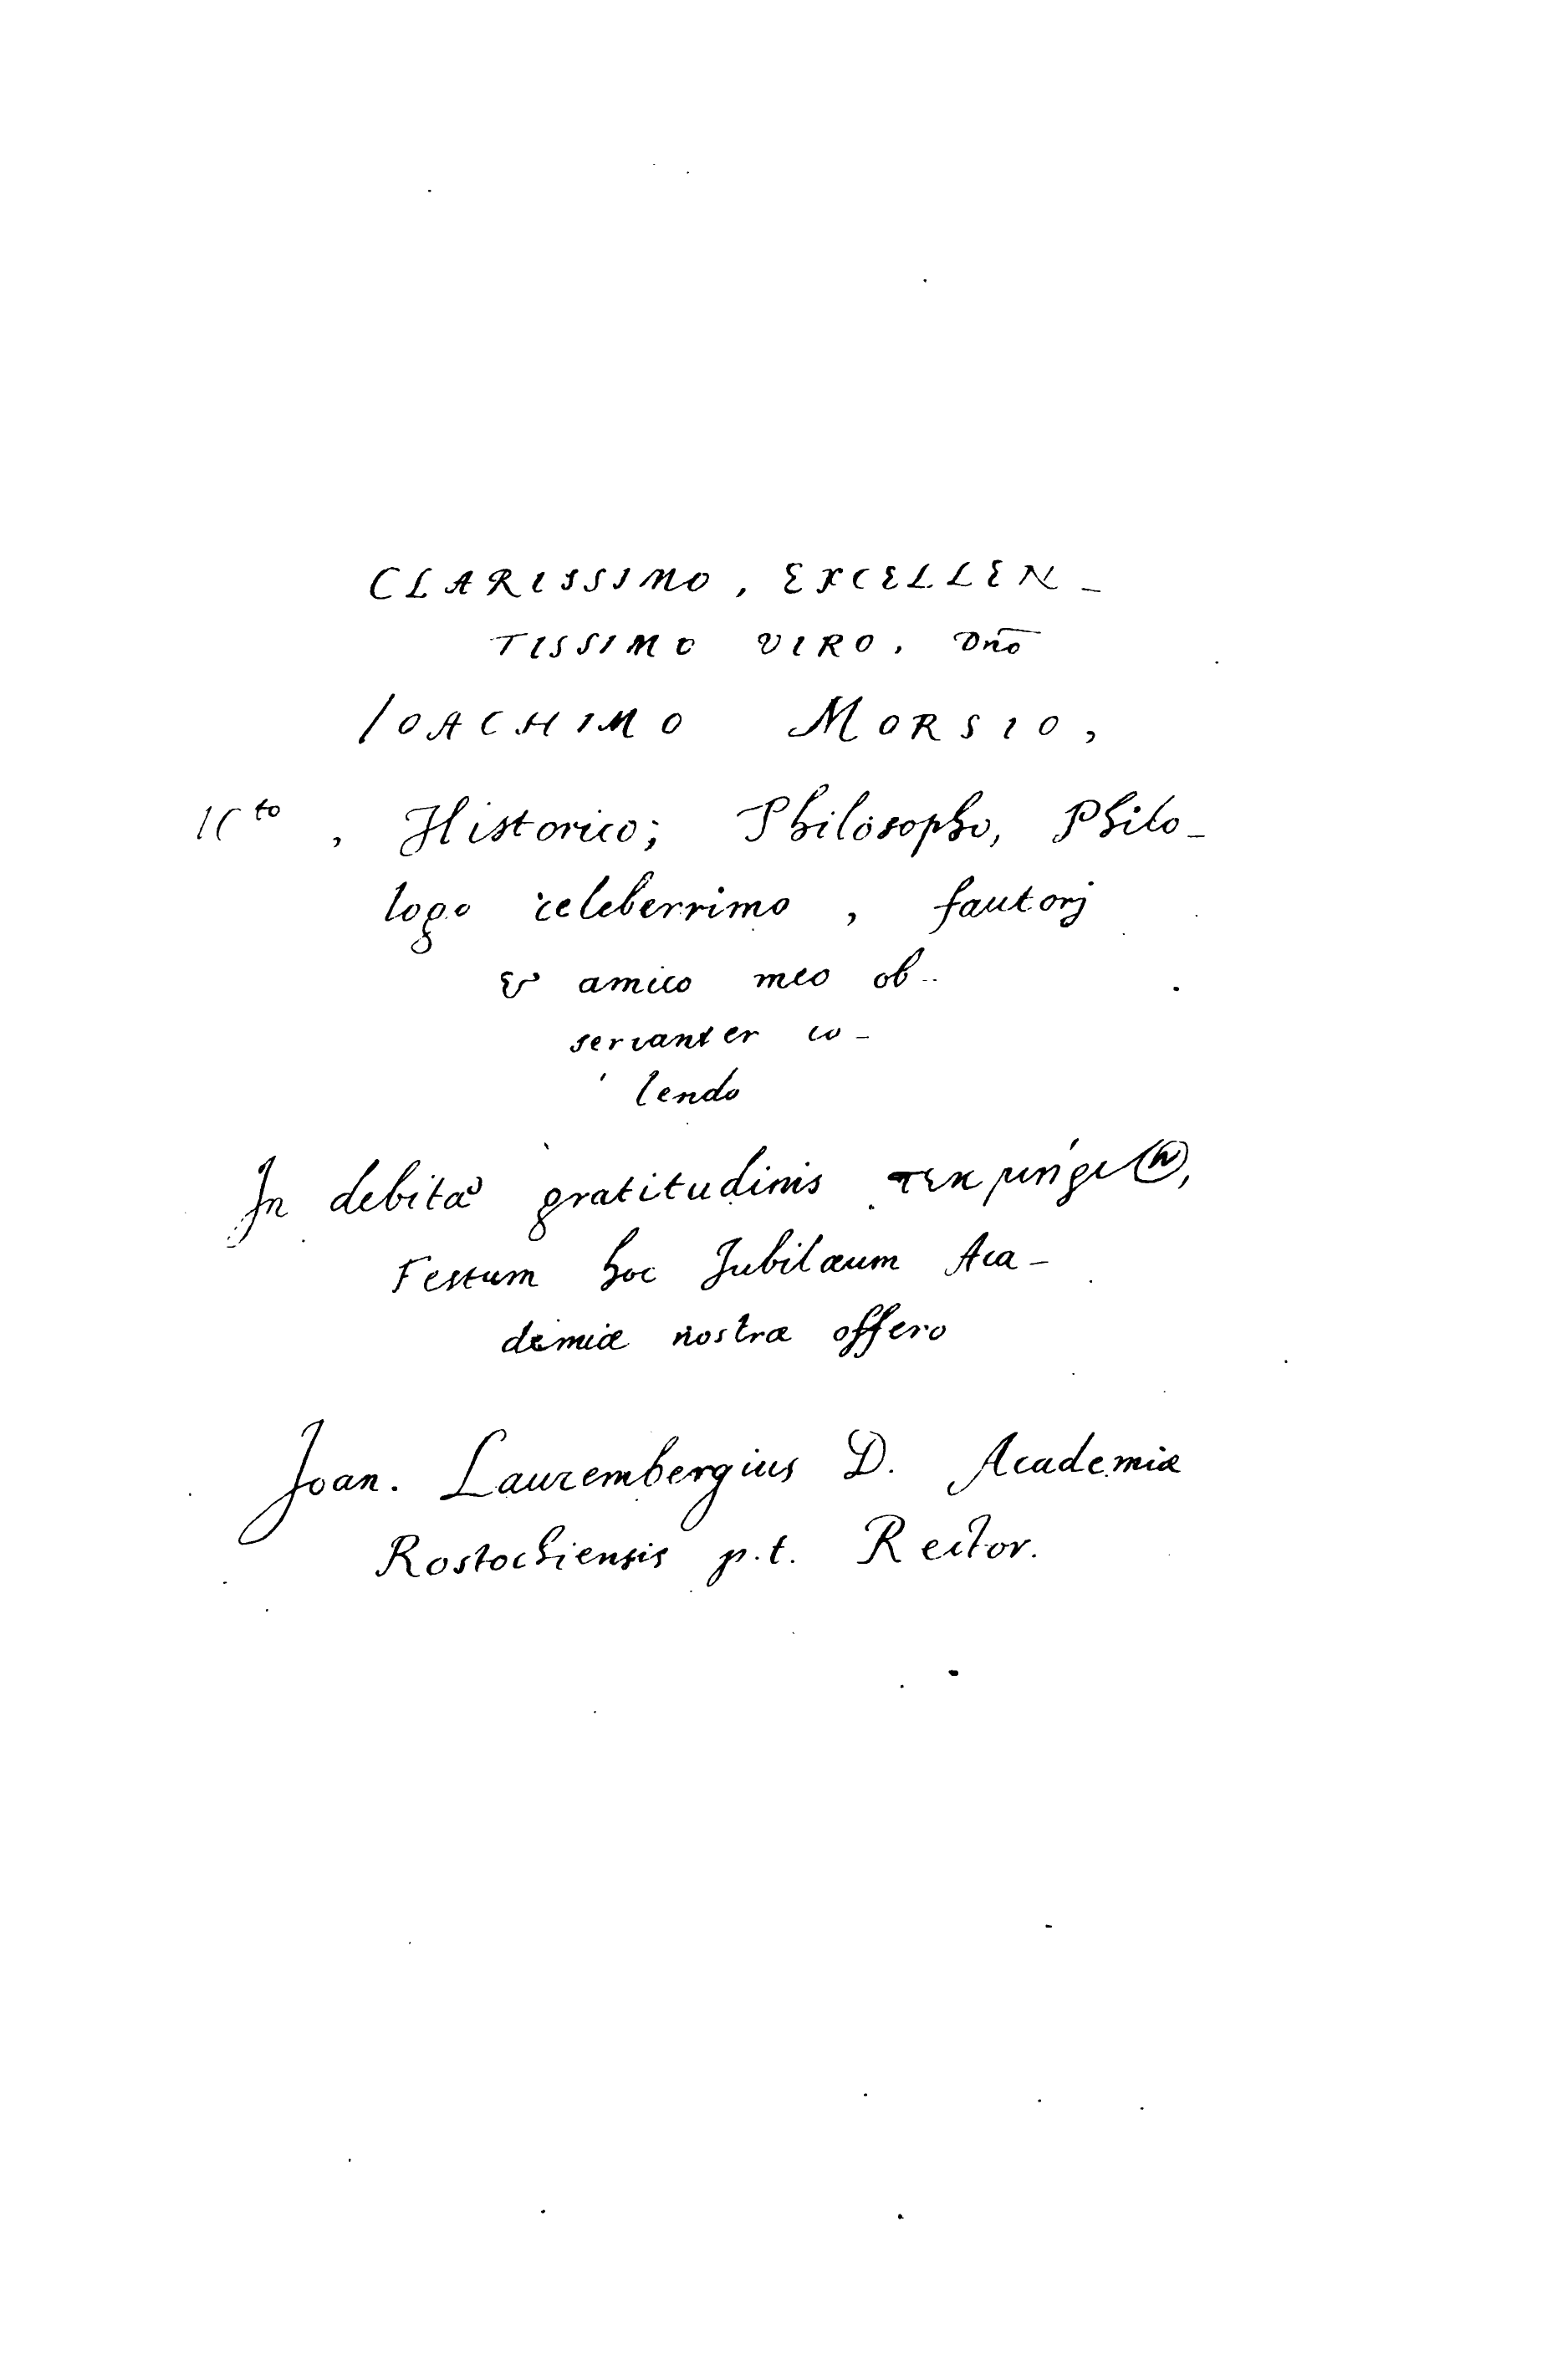 CLARISSIMO, EXCELLEN-
TISSIMO VIRO, Dn̄o
IOACHIMO MORSIO,
ICto, Historico; Philosopho, Philo-
logo celeberrimo, fautorj
& amico meo ob-
servanter co-
lendo
In debitæ gratitudinis
Festum hoc Jubilæum Aca-
demiæ nostræ offero
Joan. Laurembergius D. Academiæ
Rostochiensis p.t. Rector.